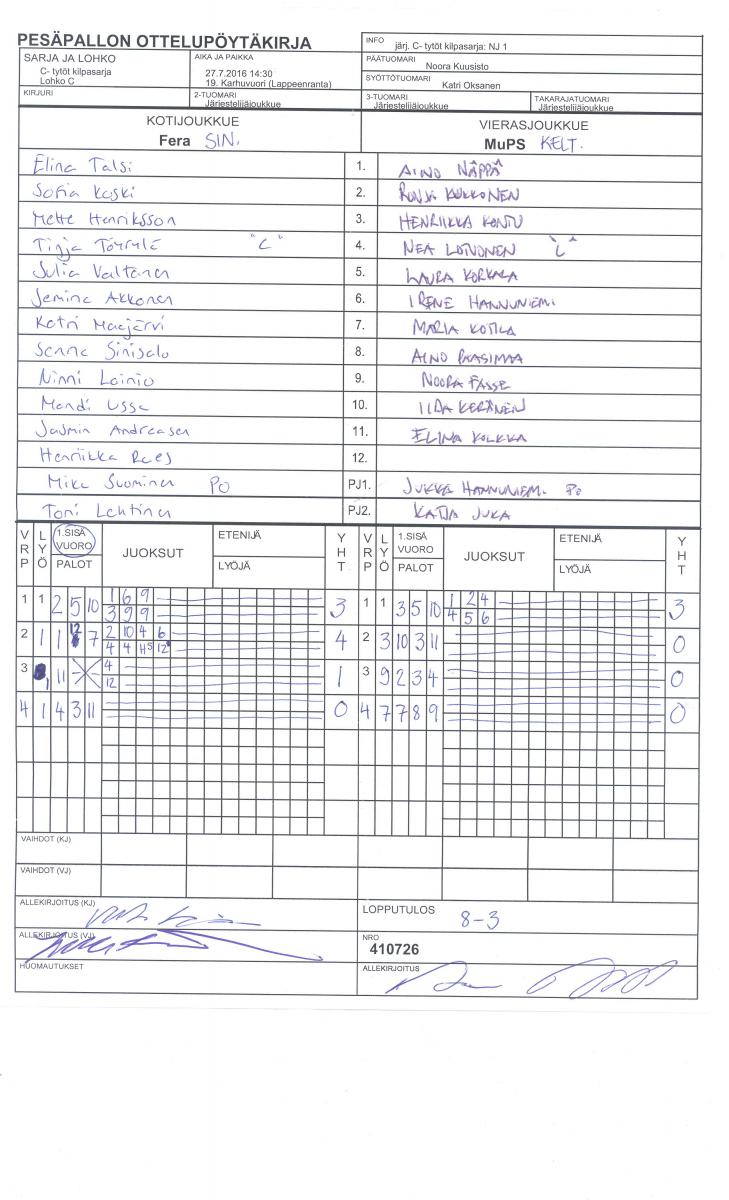 PESÄPALLON OTTELUPÖYTÄKIRJA
INFO järj. C- tytöt kilpasarja: NJ 1
SARJA JA LOHKO
C- tytöt kilpasarja
Lohko C
AIKA JA PAIKKA
27.7.2016 14:30
19. Karhuvuori (Lappeenranta)
PÄÄTUOMARI Noora Kuusisto
SYÖTTÖTUOMARI Katri Oksanen
KIRJURI
2-TUOMARI
Järjestelijäjoukkue
3-TUOMARI
Järjestelijäjoukkue
TAKARAJATUOMARI
Järjestelijäjoukkue
KOTIJOUKKUE
Fera SIN.
VIERASJOUKKUE
MuPS KELT.
Elina Talsi 1. AINO NÄPPÄ
Sofia Koski 2. RONJA KUKKONEN
Mette Henriksson 3. HENRIIKKA KONTU
Tinja Töyrylä "C" 4. NEA LOIVONEN "L"
Julia Valtanen 5. LAURA KORKALA
Jemina Akkonen 6. IRENE HANNUNIEMI
Katri Maejärvi 7. MARIA KOTILA
Sanna Sinisalo 8. AINO PAASIMAA
Ninni Lainio 9. NOORA FASSE
Mandi Ussa 10. IIDA KERÄNEN
Jasmin Andreasen 11. ELINA KOLKKA
Henriikka Raes 12.
Mika Suominen PO PJ1. JUKKA HANNUNIEMI PO
Toni Lahtinen PJ2. KATJA JUKA
VRP LYÖ 1.SISÄ VUORO PALOT JUOKSUT ETENIJÄ LYÖJÄ YHT VRP LYÖ 1.SISÄ VUORO PALOT JUOKSUT ETENIJÄ LYÖJÄ YHT
1 1 2 5 10 1 6 9 3 1 1 3 5 10 1 2 4 3
3 9 9 4 5 6
2 1 1 12 7 2 10 4 6 4 2 3 10 3 11 0
4 4 H5 12
3 1 11 4 1 3 9 2 3 4 0
12
4 1 4 3 11 0 4 7 7 8 9 0
VAIHDOT (KJ)
VAIHDOT (VJ)
ALLEKIRJOITUS (KJ)
LOPPUTULOS 8-3
ALLEKIRJOITUS (VJ)
NRO
410726
HUOMAUTUKSET
ALLEKIRJOITUS